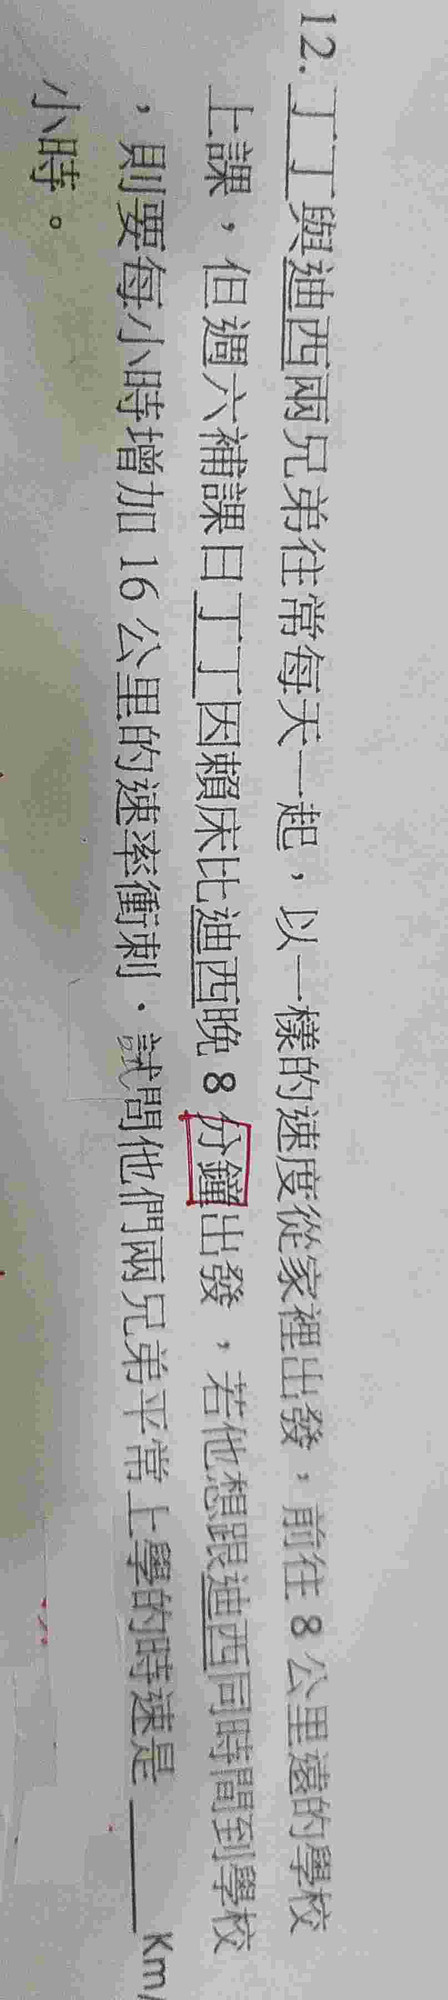 12. 丁丁與迪西兩兄弟往常每天一起，以一樣的速度從家裡出發，前往 8 公里遠的學校
上課，但週六補課日丁丁因賴床比迪西晚 8 分鐘出發，若他想跟迪西同時間到學校
，則要每小時增加 16 公里的速率衝刺．試問他們兩兄弟平常上學的時速是＿＿＿Km/
小時。